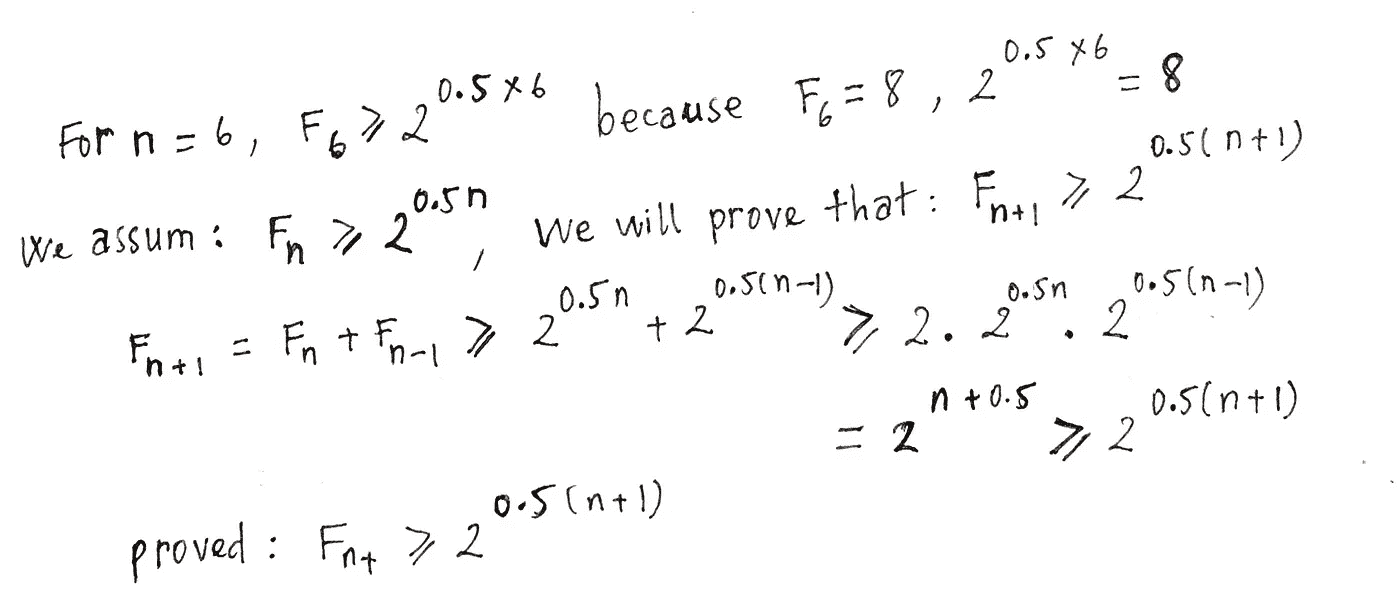 For n = 6, F₆ ⩾ 2^{0.5×6} because F₆ = 8, 2^{0.5×6} = 8
We assum: Fₙ ⩾ 2^{0.5n}, We will prove that: F_{n+1} ⩾ 2^{0.5(n+1)}
F_{n+1} = Fₙ + F_{n-1} ⩾ 2^{0.5n} + 2^{0.5(n-1)} ⩾ 2 . 2^{0.5n} . 2^{0.5(n-1)}
= 2^{n+0.5} ⩾ 2^{0.5(n+1)}
proved: F_{n+} ⩾ 2^{0.5(n+1)}